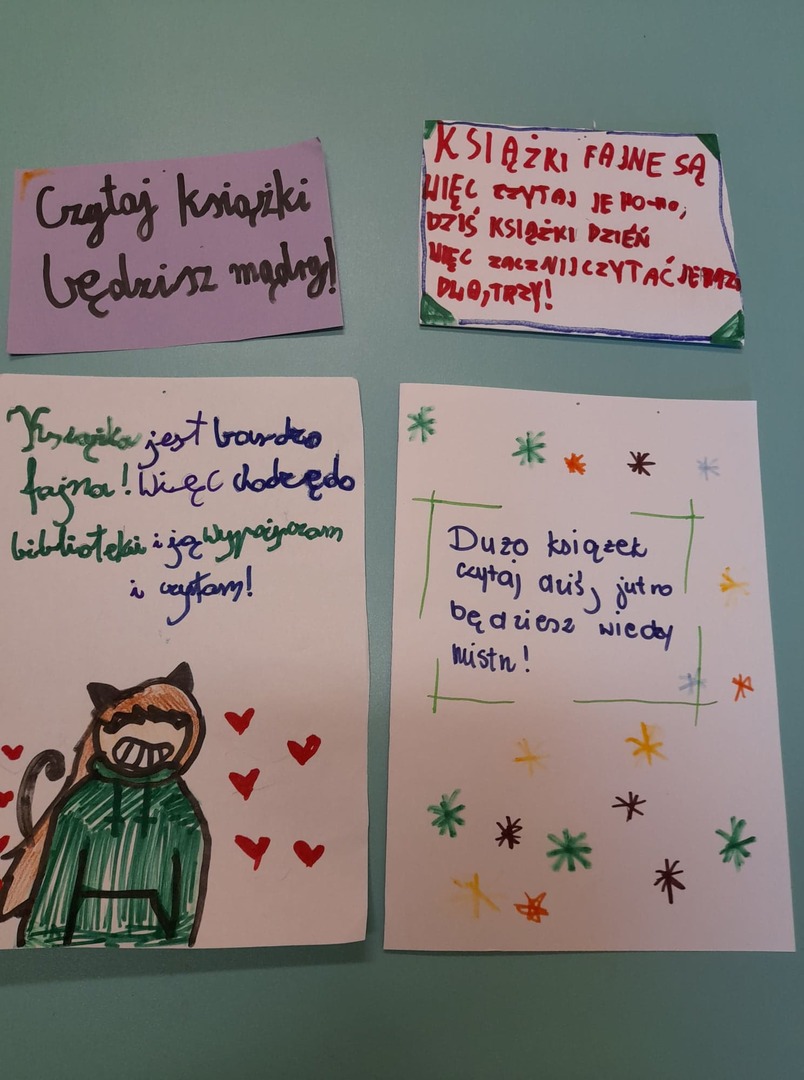 Czytaj książki
będzisz mądry!
KSIĄŻKI FAJNE SĄ
WIĘC CZYTAJ JE HO-HO,
DZIŚ KSIĄŻKI DZIEŃ
WIĘC ZACZNIJ CZYTAĆ JE RAZ
DWA, TRZY!
Książka jest bardzo
fajna! Więc chodzę do
biblioteki i ją wypożyczam
i czytam!
Dużo książek
czytaj dziś, jutro
będziesz wiedzy
mistrz!